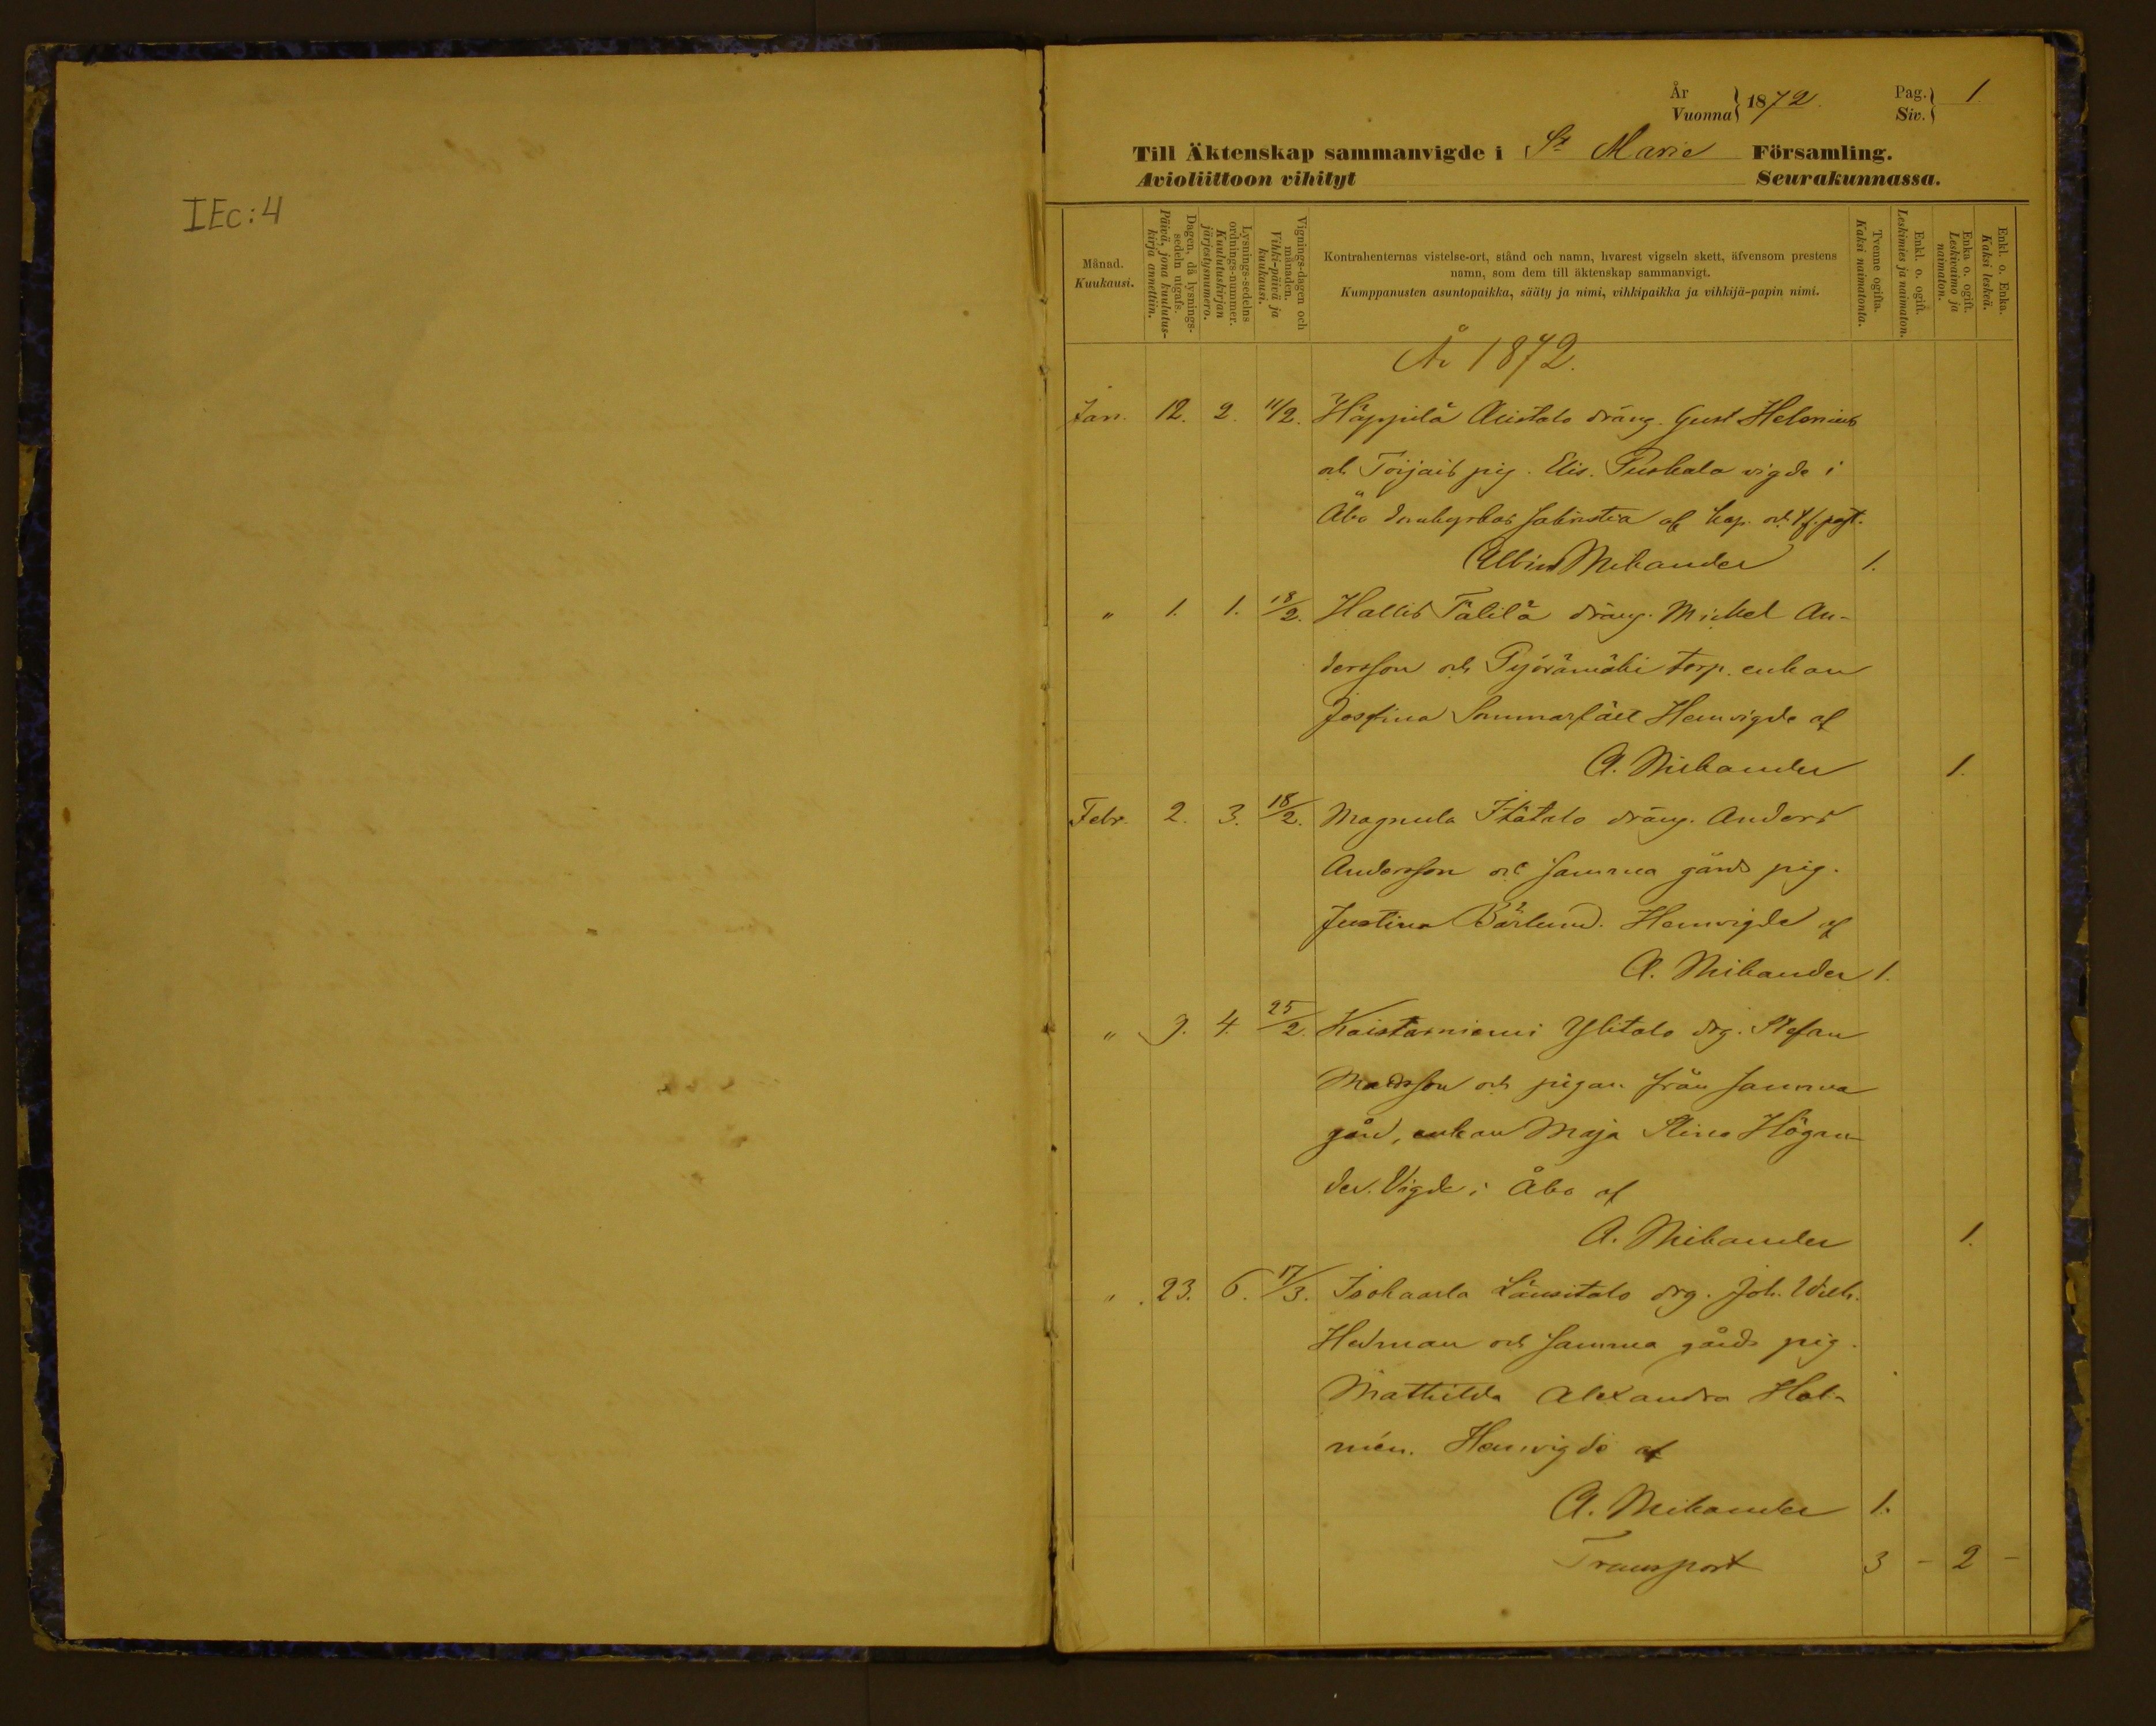 IEc:4
År Vuonna 1872 Pag. Siv. 1.
Till Äktenskap sammanvigde i St Marie Församling.
Avioliittoon vihityt Seurakunnassa.
Månad.
Kuukausi.
Dagen, då lysnings-
sedeln utgafs.
Päivä, jona kuulutus-
kirja annettiin.
Lysnings-sedelns
ordnings-nummer.
Kuulutuskirjan
järjestysnumero.
Vignings-dagen och
månaden.
Vihki-päivä ja
kuukausi.
Kontrahenternas vistelse-ort, stånd och namn, hvarest vigseln skett, äfvensom prestens
namn, som dem till äktenskap sammanvigt.
Kumppanusten asuntopaikka, sääty ja nimi, vihkipaikka ja vihkijä-papin nimi.
Tvenne ogifta.
Kaksi naimatonta.
Enkl. o. ogift.
Leskimies ja naimaton.
Enka o. ogift.
Leskivaimo ja
naimaton.
Enkl. o. Enka.
Kaksi leskeä.
År 1872.
Jan. 12. 2. 11/2. Häppilä Alistalo dräng. Gust Helenius
och Toijais pig. Elis. Puskala vigde i
Åbo domkyrkas sakristia af kap. och tf. past.
Albin Mikander 1.
" 1. 1. 18/2. Hallis Tälilä dräng. Mickel An-
dersson och Pyörämäki torp. enkan
Josefina Sommarfält Hemvigde af
A. Mikander 1.
Febr. 2. 3. 18/2. Magnula Itätalo dräng. Anders
Andersson och samma gårds pig.
Justina Bärlund. Hemvigde af
A. Mikander 1.
" 9. 4. 25/2. Kaistarniemi Ylitalo drg. Stefan
Madsson och pigan från samma
gård, enkan Maja Stina Högan-
der. Vigde i Åbo af
A. Mikander 1.
" 23. 6. 17/3. Isokaarla Länsitalo drg. Joh. Wilh.
Hedman och samma gårds pig.
Mathilda Alexandra Hol-
mén. Hemvigde af
A. Mikander 1.
Transport 3 - 2 -